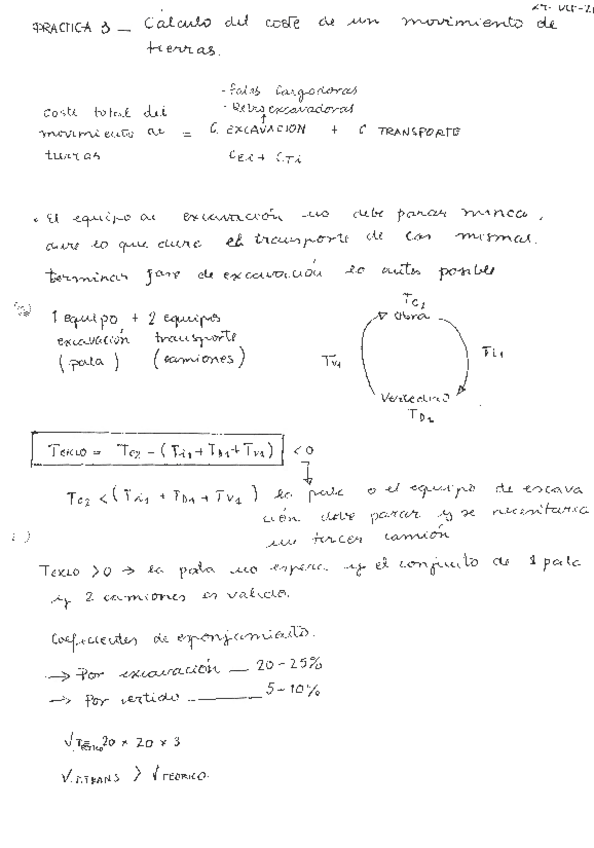 PRACTICA 3 — Cálculo del coste de un movimiento de
tierras.
- Palas Cargadoras
- Retroexcavadoras
Coste total del
movimiento de = C. EXCAVACIÓN + C TRANSPORTE
tierras
CEi + CTi
• El equipo de excavación no debe parar nunca,
dure lo que dure el transporte de las mismas.
terminar fase de excavación lo antes posible
1 equipo + 2 equipos
excavación transporte
(pala) (camiones)
TC2
Obra
Ti1
TV1
Vertedero
TD2
TCICLO = TC2 - (Ti1 + TD1 + TV1) < 0
TC2 < (Ti1 + TD1 + TV1) la pala o el equipo de excava
ción debe parar y se necesitaría
un tercer camión
TCICLO > 0 → la pala no espera y el conjunto de 1 pala
y 2 camiones es valido.
Coeficientes de esponjamiento.
→ Por excavación — 20-25%
→ Por vertido ——— 5-10%
V.TEÓRICO = 20 x 20 x 3
V.TRANS > V TEORICO.